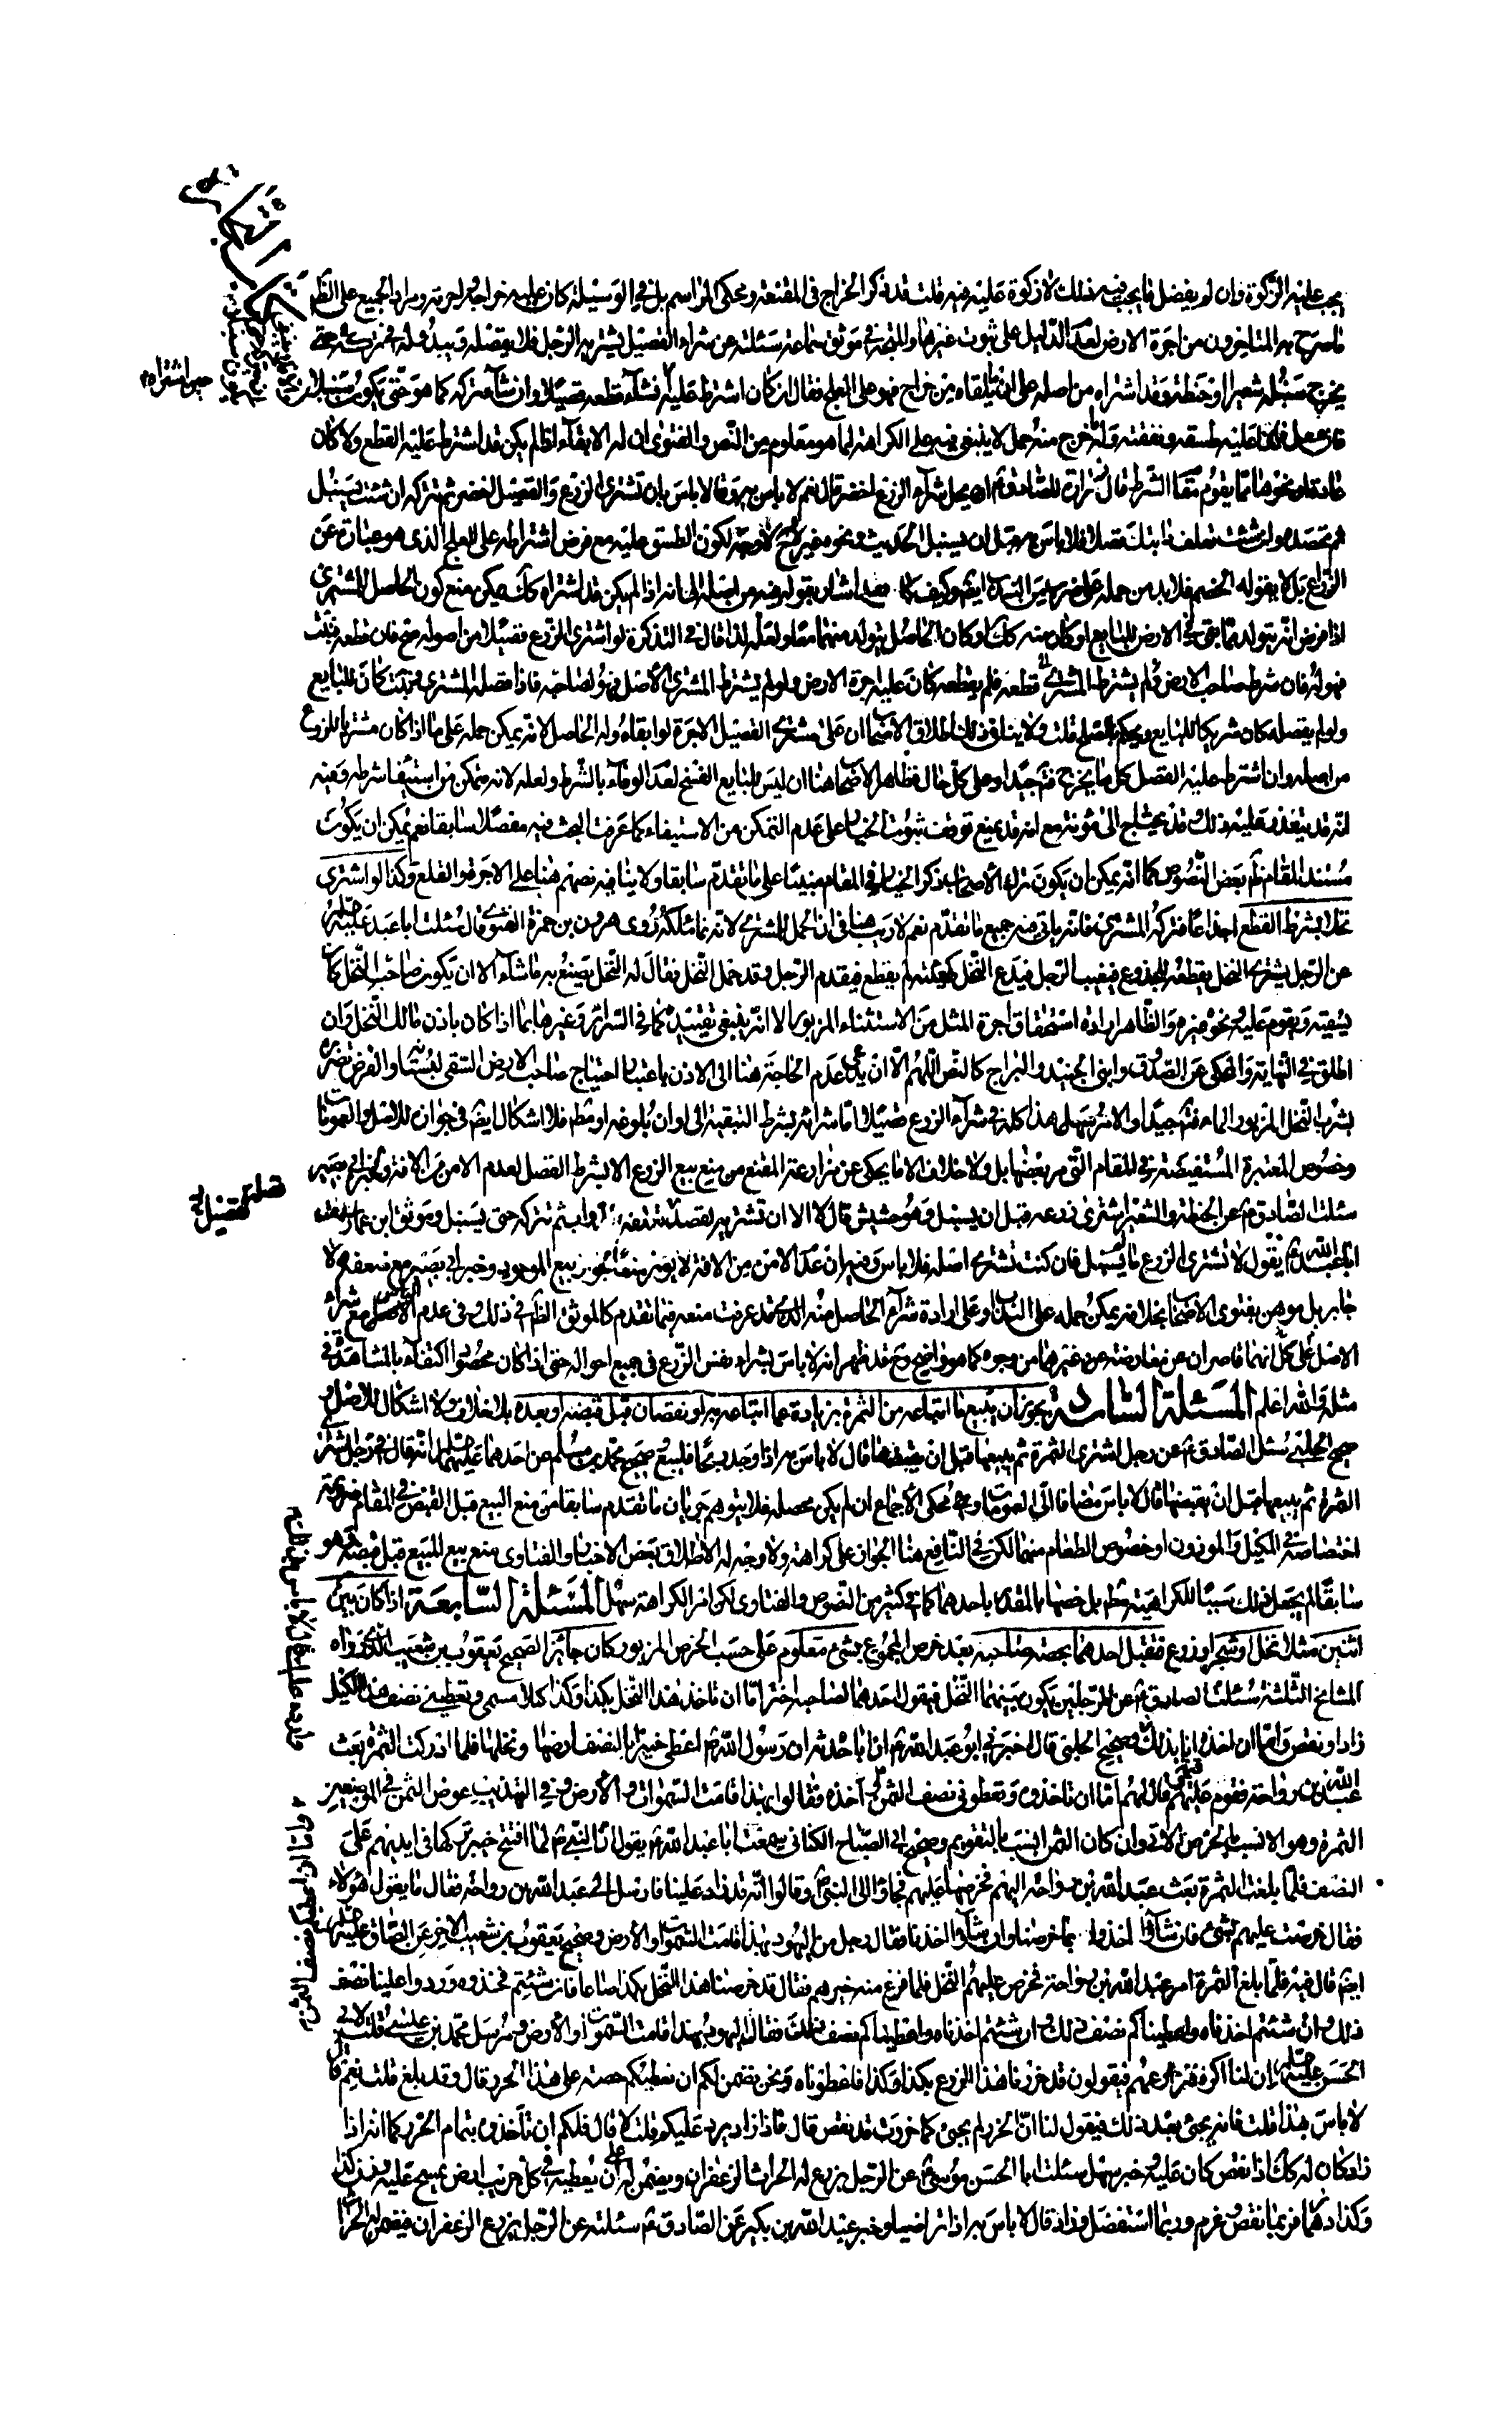 يجب عليه الزكوة وان لم يفضل فما يجب فيه ذلك لا زكوة عليه فيه قلت قد ذكر الخراج في المقنعة ومحكى المراسم بل في الوسيلة كان عليه خراجه او مراد الجميع على الظ
ما صرح به المتاخرون من اجرة الارض لعدم الدليل على ثبوت غيرها والمتجه في موثق سماعة سئلته عن شراء القصيل يشتريه الرجل فلا يقصله ويبدو له في تركه حتى
يخرج سنبله شعيرا او حنطة وقد اشتراه من اصله على ان ما يلقاه من خراج فهو على العلج فقال ان كان اشترط عليه ان شاء قطعه قصيلا وان شاء تركه كما هو حتى يكون سنبلا
حين اشتراه
فان فعل فان عليه طسقه ونفقته وله ما خرج منه لا ينبغي على الكراهة لما هو معلوم من النص والفتوى ان له الابقاء اذا لم يكن قد اشترط عليه القطع ولا كان
عادة او نحوها مما يقوم مقام الشرط قال زرارة للصادق ايحل شراء الزرع اخضر قال نعم لا باس به وقال لا باس بان تشتري الزرع والقصيل اخضر ثم تتركه ان شئت حتى يسنبل
ثم تحصده وان شئت تعلف دابتك قصيلا فلا باس به قبل ان يسنبل الحديث ونحوه غيره لا وجه لكون الطسق عليه مع فرض اشتراطه على العلج الذي هو عبارة عن
الزراع بل لا يقوله الخصم فلا بد من حمله على ضرب من الندب ايضا وكيف كان فقد اشار بقوله فيه من اصله الى انه اذا لم يكن قد اشتراه كك يمكن منع كون الحاصل للمشتري
اذا فرض انه يتولد مما بقى في الارض للبايع او كان منه كك او كان الحاصل يتولد منهما معا ولعله لذا قال في التذكرة لو اشترى الزرع قصيلا من اصوله صح فان قطعه فنبتت
فهو له فان شرط صاحب الارض قطعه فلم يقطعه كان عليه اجرة الارض ولو لم يشترط المشتري الاصل فهو لصاحبه فاذا قصله المشتري فنبت كان للبايع
ولو لم يقصله كان شريكا للبايع ويحكم بالصلح قلت ولا ينافي ذلك اطلاق الاصحاب ان على مشتري القصيل الاجرة لو ابقاه وله الحاصل لانه يمكن حمله على ما اذا كان مشتريا للزرع
من اصله وان اشترط عليه الفصل كل ما يخرج فتم جيدا وعلى كل حال فظاهر الاصحاب هنا ان ليس للبايع الفسخ لعدم الوفاء بالشرط ولعله لانه متمكن من استيفاء شرطه وفيه
انه قد يتعذر عليه ذلك وقد يحتاج الى مؤنة مع انه قد يمنع توقف ثبوت الخيار على عدم التمكن من الاستيفاء كما عرفت البحث فيه مفصلا سابقا نعم يمكن ان يكون
مستند المقام ظ بعض النصوص كما انه يمكن ان يكون ترك الاصحاب ذكر الخيار في المقام مبنيا على ما تقدم سابقا ولا ينافيه نصهم هنا على الاجرة والقلع وكذا لو اشترى
نخلا بشرط القطع اجذاعا فتركه المشتري فانه ياتي فيه جميع ما تقدم نعم لا ريب هنا في ان الحمل للمشتري لانه نماء ملكه روى هرون بن حمزة الغنوي قال سئلت ابا عبد الله عليه السلام
عن الرجل يشتري النخل يقطعه للجذوع فيغيب الرجل فيدع النخل كهيئته لم يقطع فيقدم الرجل وقد حمل النخل فقال له النخل يصنع به ما شاء الا ان يكون صاحب النخل كان
يسقيه ويقوم عليه ونحوه غيره والظاهر ارادة استحقاق اجرة المثل من الاستثناء المزبور الا انه ينبغي تقييده كما في السرائر وغيرها بما اذا كان باذن مالك النخل وان
اطلق في النهاية والمحكى عن الصدوق وابني الجنيد والبراج كالنص اللهم الا ان يدعى عدم الحاجة هنا الى الاذن باعتبار احتياج صاحب الارض السقى لبستانه والفرض تضرره
بشرب النخل المزبور الماء فتم جيدا والامر سهل هذا كله في شراء الزرع قصيلا اما شرائه بشرط التبقية الى اوان بلوغه او مطلقا فلا اشكال ايضا في جوازه للاصل والعمومات
وخصوص المعتبرة المستفيضة في المقام التي مر بعضها بل ولا خلاف الا ما يحكى عن مزارعة المقنع من منع بيع الزرع الا بشرط الفصل لعدم الامن من الافة ولخبر ابي بصير
سئلت الصادق عن الحنطة والشعير اشتري زرعه قبل ان يسنبل وهو حشيش قال لا الا ان تشتريه لقصيل تعلفه الدواب ثم تتركه حتى يسنبل وموثق ابن عمار سمعت
ابا عبد الله يقول لا تشتري الزرع ما لم يسنبل فان كنت تشتري اصله فلا باس وفيه ان عدم الامن من الافة لا يؤثر منعا لجواز بيع الموجود وخبر ابي بصير مع ضعفه ولا
جابر بل موهن بفتوى الاصحاب بخلافه يمكن حمله على الندب او على ارادة شراء الحاصل منه الذي قد عرفت منعه فيما تقدم كالموثق الظ في ذلك وفي عدم الباس مع شراء
الاصل على كل انهما قاصران عن معارضة غيرهما من وجوه كما هو واضح وح قد ظهر انه لا باس بشراء نفس الزرع في جميع احواله حتى اذا كان محصودا اكتفاء بالمشاهدة في
مثله والله اعلم المسئلة السادسة يجوز ان يبيع ما ابتاعه من الثمرة بزيادة عما ابتاعه به او نقصان قبل قبضه وبعده بلا خلاف ولا اشكال للاصل و
صحيح الحلبي سئل الصادق عن رجل اشترى الثمرة ثم يبيعها قبل ان يقبضها قال لا باس به اذا وجد ربحا فليبع وصحيح محمد بن مسلم عن احدهما عليهما السلام انه قال في رجل اشترى
الثمرة ثم يبيعها قبل ان يقبضها قال لا باس مضافا الى العمومات ومحكى الاجماع ان لم يكن محصله فلا يتوهم جريان ما تقدم سابقا من منع البيع قبل القبض في المقام ضرورة
اختصاصه في المكيل والموزون او خصوص الطعام منهما لكن في النافع هنا الجواز على كراهة ولا وجه له الا اطلاق بعض الاخبار والفتاوى منع بيع المبيع قبل قبضه وهو
سابقا لم يجعل ذلك سببا للكراهية مطلقا بل خصها بالمقدر باحدهما كما في كثير من النصوص والفتاوى لكن امر الكراهة سهل المسئلة السابعة اذا كان بين
اثنين مثلا نخل او شجر او زرع فتقبل احدهما بحصة صاحبه بعد خرص المجموع بشئ معلوم على حسب الخرص المزبور كان جائزا لصحيح يعقوب بن شعيب الذي رواه
المشايخ الثلثة سئلت الصادق عن الرجلين يكون بينهما النخل فيقول احدهما لصاحبه اختر اما ان تاخذ هذا النخل بكذا وكذا كيلا مسمى وتعطيني نصف هذا الكيل
زاد او نقص واما ان اخذه انا بذلك وصحيح الحلبي قال اخبرني ابو عبد الله ان اباه حدثه ان رسول الله اعطى خيبرا بالنصف ارضها ونخلها فلما ادركت الثمرة بعث
عبد الله بن رواحة فقوم عليهم قيمة فقال لهم اما ان تاخذوه وتعطوني نصف الثمن واما آخذه فقالوا بهذا قامت السموات والارض وفي التهذيب عوض الثمن في الموضعين
الثمرة وهو الانسب بالخرص الاتي وان كان الثمن انسب بالتقويم وصحيح ابي الصباح الكناني سمعت ابا عبد الله يقول ان النبي لما افتتح خيبر تركها في ايديهم على
النصف فلما بلغت الثمرة بعث عبد الله بن رواحة اليهم فخرصها عليهم فجاؤا الى النبي وقالوا انه قد زاد علينا فارسل الى عبد الله بن رواحة فقال ما يقول هؤلاء
فقال خرصت عليهم بشئ فان شاؤا اخذوا بما خرصنا وان شاؤا اخذنا فقال رجل من اليهود بهذا قامت السموات والارض وصحيح يعقوب بن شعيب الاخير عن الصادق عليه السلام
ايضا قال فيه فلما بلغ الثمرة امر عبد الله بن رواحة فخرص عليهم النخل فلما فرغ منه خيرهم فقال قد خرصنا هذا النخل بكذا صاعا فان شئتم فخذوه وردوا علينا نصف
ذلك وان شئتم اخذناه واعطيناكم نصف ذلك فقال اليهود بهذا قامت السموات والارض ومرسل محمد بن عيسى قلت لابي
الحسن عليه السلام ان لنا اكرة فنزارعهم فيقولون قد حزرنا هذا الزرع بكذا وكذا فاعطوناه ونحن نضمن لكم ان نعطيكم حصته على هذا الحزر قال وقد بلغ قلت نعم قال
لا باس بهذا قلت فانه يجئ بعد ذلك فيقول لنا ان الحزر لم يجئ كما حزرت قد نقص قال فاذا زاد يرد عليكم قلت لا قال فلكم ان تاخذوه بتمام الحزر كما انه اذا
زاد كان له كك اذا نقص كان عليه وخبر سهل سئلت ابا الحسن موسى عن الرجل يزرع له الحراث الزعفران ويضمن له على ان يعطيه في كل جريب ارض يمسح عليه وزن كذا
وكذا درهما فربما نقص وغرم وربما استفضل وزاد قال لا باس به اذا تراضيا وخبر عبد الله بن بكير عن الصادق سئلته عن الرجل يزرع الزعفران فيضمن له الحراث